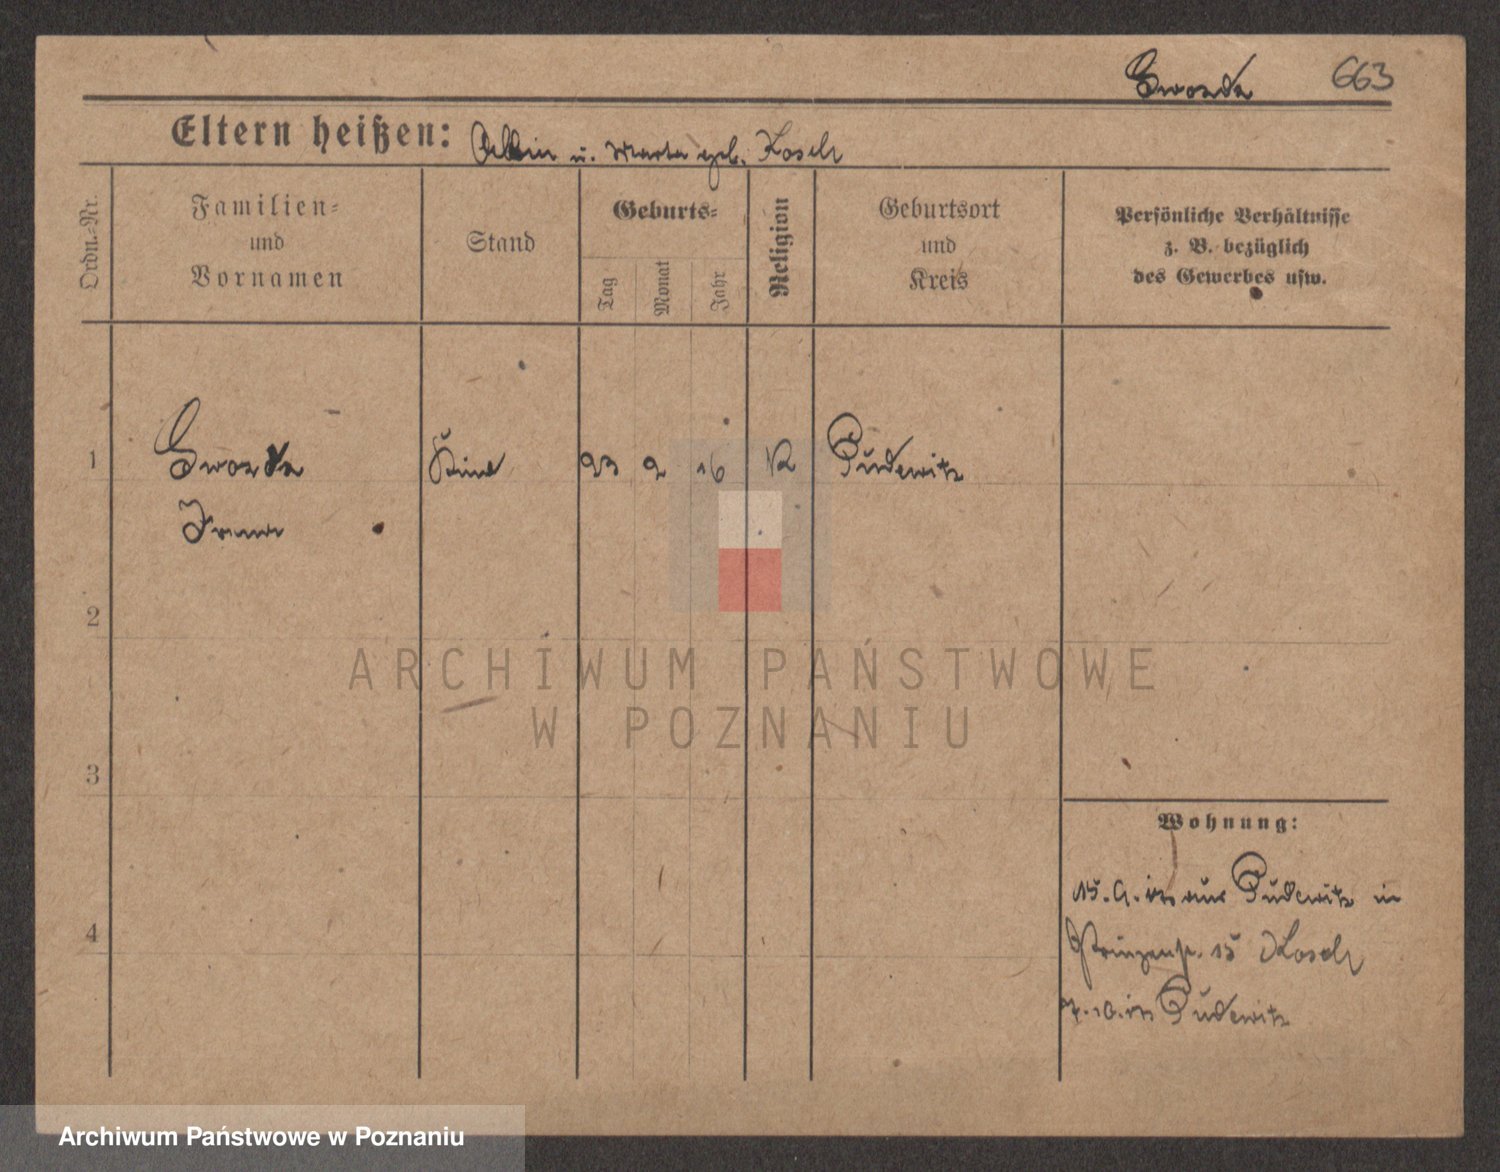 Gwozdz 663
Eltern heißen: Albin u. Marta geb. Losch
Ordn.-Nr.
Familien-
und
Vornamen
Stand
Geburts-
Tag
Monat
Jahr
Religion
Geburtsort
und
Kreis
Persönliche Verhältnisse
z. B. bezüglich
des Gewerbes usw.
1 Kind 23 2 16 K Pudewitz
Irene
2
3
4
Wohnung:
15. 9. aus Pudewitz in
Prinzenstr. 15 Losch
Pudewitz
ARCHIWUM PAŃSTWOWE
W POZNANIU
Archiwum Państwowe w Poznaniu